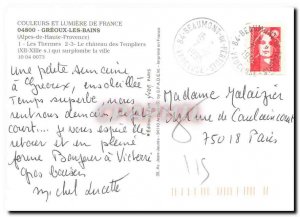 COULEURS ET LUMIÈRE DE FRANCE
04800 - GRÉOUX-LES-BAINS
(Alpes-de-Haute-Provence)
1 - Les Thermes 2-3- Le château des Templiers
(XII-XIIIe s.) qui surplombe la ville
10 04 0073
Une petite semaine
à Gréoux, ensoleillée
Temps superbe, nous
rentrons demain, c'est
court.... je vous espère de
retour et en pleine
forme Bonjour à
Gros baisers
Michel Lucette
84 BEAUMONT
Madame Malaizier
rue de Caulaincourt
75018 Paris
115